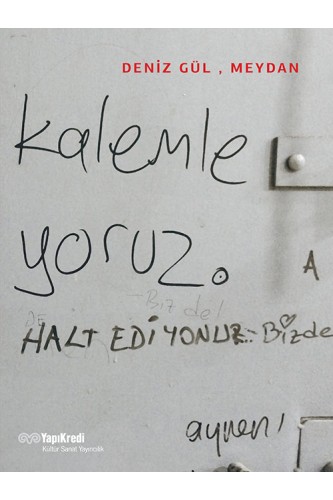 DENİZ GÜL , MEYDAN
kalemle
yoruz.
A
-Biz de!
DE
HALT EDİYONUZ :- Bizde
aynen!
YapıKredi
Kültür Sanat Yayıncılık